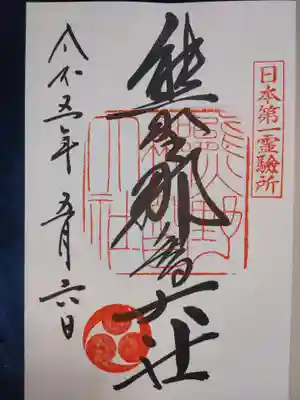 日本第一霊験所
熊野那智大社
令和五年五月六日